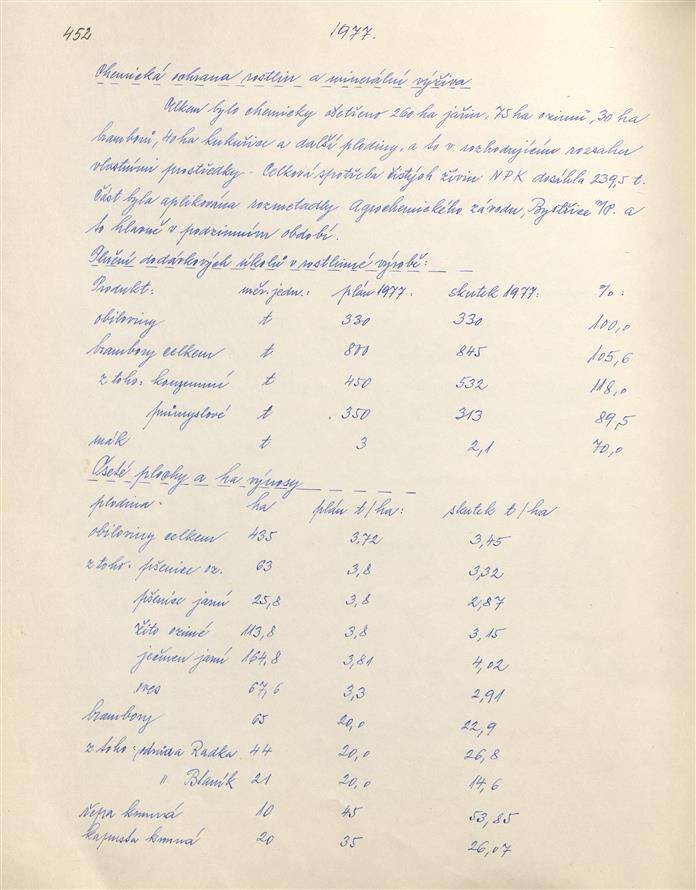 452
1977.
Chemická ochrana rostlin a minerální výživa
Celkem bylo chemicky ošetřeno 260 ha jařin, 75 ha ozimů, 30 ha
bramborů, 40 ha kukuřice a další plodiny, a to v rozhodujícím rozsahu
vlastními prostředky. Celková spotřeba čistých živin NPK dosáhla 239,5 t.
Část byla aplikována rozmetadly Agrochemického závodu, Bystřice n/P. a
to hlavně v podzimním období.
Plnění dodávkových úkolů v rostlinné výrobě:
Produkt: měr. jedn.: plán 1977. skutek 1977: %:
obiloviny t 330 330 100,0
brambory celkem t 800 845 105,6
z toho: konzumní t 450 532 118,0
průmyslové t 350 313 89,5
mák t 3 2,1 70,0
Oseté plochy a ha výnosy
plodina. ha plán t/ha: skutek t/ha
obiloviny celkem 435 3,72 3,45
z toho: pšenice oz. 63 3,8 3,32
pšenice jarní 25,8 3,8 2,87
žito ozimé 113,8 3,8 3,15
ječmen jarní 164,8 3,81 4,02
oves 67,6 3,3 2,91
brambory 65 20,0 22,9
z toho: odrůda Radka 44 20,0 26,8
" Blaník 21 20,0 14,6
řepa krmná 10 45 53,85
kapusta krmná 20 35 26,07